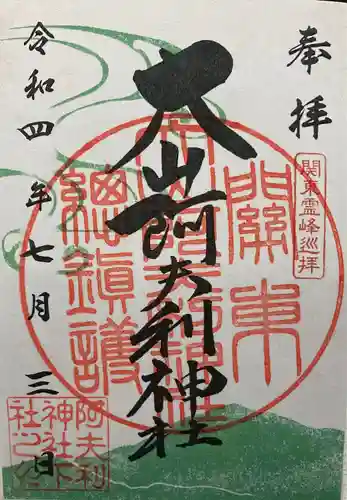 奉拝
関東霊峰巡拝
關東
總鎮護
大山阿夫利神社
令和四年七月三日
阿夫利
神社下
社之印